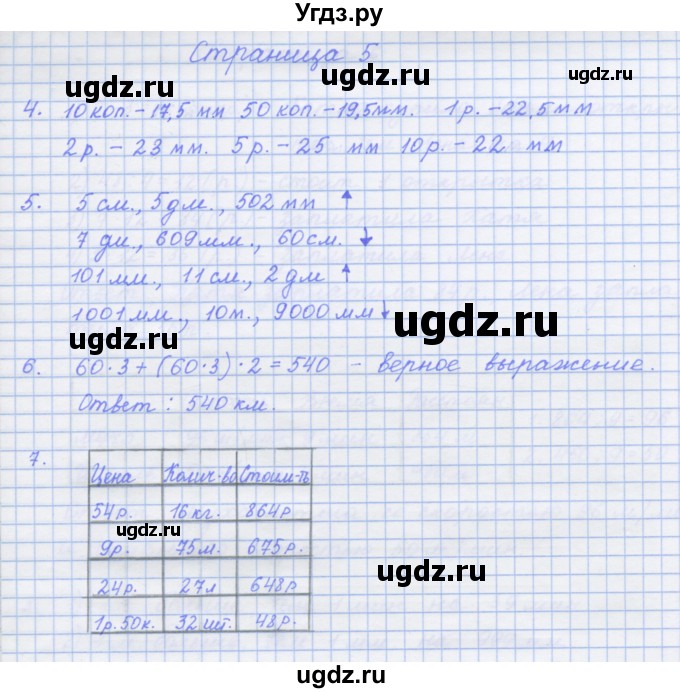 Угдз.ру
Страница 5
ugdz.ru ugdz.ru
4. 10 коп. - 17,5 мм 50 коп. - 19,5мм. 1 р. - 22,5 мм
2 р. - 23 мм. 5 р. - 25 мм 10 р. - 22 мм
ugdz.ru
5. 5 см., 5 дм., 502 мм ↑
7 дм., 609 мм., 60 см. ↓
101 мм., 11 см., 2 дм ↑
1001 мм., 10 м., 9000 мм ↓
ugdz.ru
ugdz.ru
6. 60·3+(60·3)·2=540 - верное выражение.
Ответ: 540 км.
ugdz.ru
7.
Цена Колич-во Стоим-ть
54р. 16 кг. 864р
ugdz.ru
9р. 75м. 675р.
ugdz.ru
24р. 27л 648р
1р.50к. 32 шт. 48р.
ugdz.ru